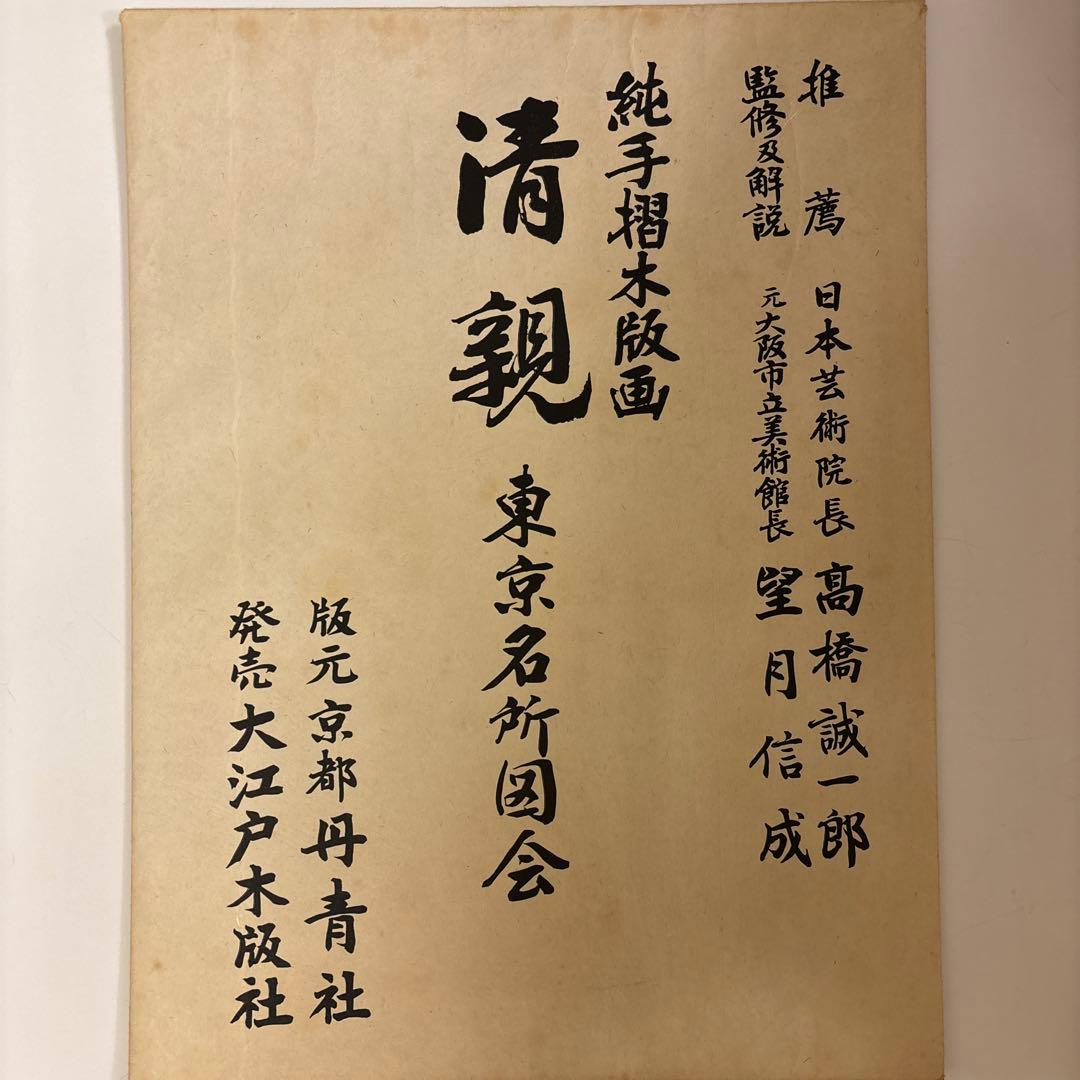 推薦 日本芸術院長 高橋誠一郎
監修及解説 元大阪市立美術館長 望月信成
純手摺木版画
清親 東京名所図会
版元 京都 丹青社
発売 大江戸木版社